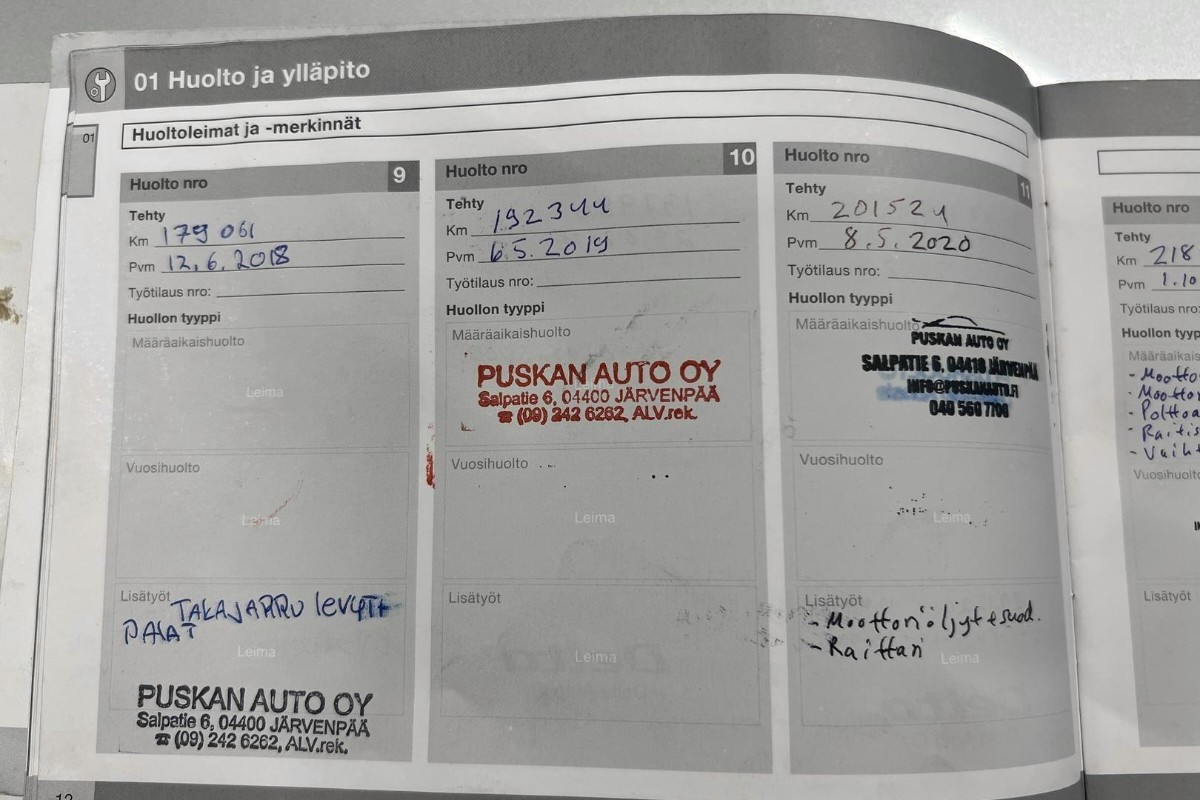 01 Huolto ja ylläpito
01
Huoltoleimat ja -merkinnät
Huolto nro 9
Tehty
Km 179 061
Pvm 12.6.2018
Työtilaus nro:
Huollon tyyppi
Määräaikaishuolto
Leima
Vuosihuolto
Leima
Lisätyöt
TAKAJARRU levyt+
PALAT
Leima
PUSKAN AUTO OY
Salpatie 6, 04400 JÄRVENPÄÄ
☎ (09) 242 6262, ALV.rek.
Huolto nro 10
Tehty
Km 192344
Pvm 6.5.2019
Työtilaus nro:
Huollon tyyppi
Määräaikaishuolto
PUSKAN AUTO OY
Salpatie 6, 04400 JÄRVENPÄÄ
☎ (09) 242 6262, ALV.rek.
Vuosihuolto
Leima
Lisätyöt
Leima
Huolto nro 11
Tehty
Km 201524
Pvm 8.5.2020
Työtilaus nro:
Huollon tyyppi
Määräaikaishuolto
PUSKAN AUTO OY
SALPATIE 6, 04410 JÄRVENPÄÄ
INFO@PUSKANAUTO.FI
040 560 7700
Vuosihuolto
Leima
Lisätyöt
- Moottoriöljyt + suod.
- Raittari
Leima
Huolto nro
Tehty
Km 218
Pvm 1.10
Työtilaus nro:
Huollon tyyp
Määräaikais
- Mootto
- Moottor
- Polttoa
- Raitis
- Vaiht
Vuosihuolto
Lisätyöt
12